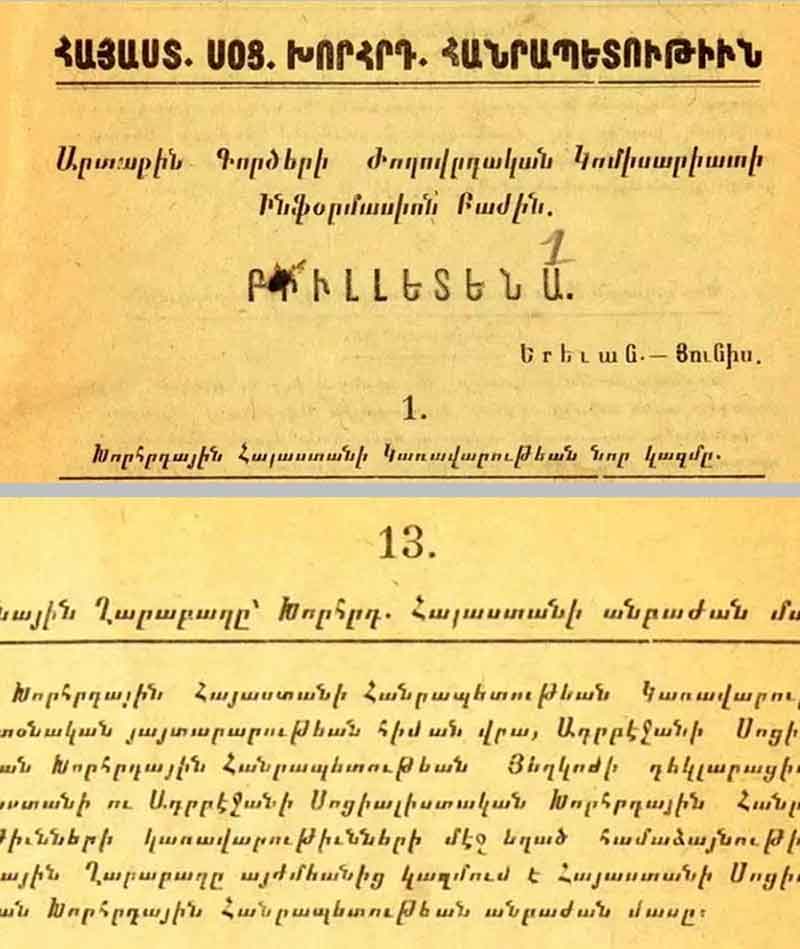 ՀԱՅԱՍՏ. ՍՕՑ. ԽՈՐՀՐԴ. ՀԱՆՐԱՊԵՏՈՒԹԻՒՆ
Արտաքին Գործերի Ժողովրդական Կոմիսարիատի
Ինֆօրմասիոն Բաժին.
ԲԻԻԼԼԵՏԵՆ Ա.
1
Երեւան.— Յունիս.
1.
Խորհրդային Հայաստանի Կառավարութեան նոր կազմը.
13.
նային Ղարաբաղը՝ Խորհրդ. Հայաստանի անբաժան մա
Խորհրդային Հայաստանի Հանրապետութեան Կառավարու
տօնական յայտարարութեան հիման վրա, Ադրբէջանի Սոցի
ան Խորհրդային Հանրապետութեան Յեղկոմի դեկլարացիո
ստանի ու Ադրբէջանի Սոցիալիստական Խորհրդային Հանր
թիւնների կառավարութիւնների մէջ եղած համաձայնութի
ային Ղարաբաղը այժմեանից կազմում է Հայաստանի Սոցի
ան Խորհրդային Հանրապետութեան անբաժան մասը։